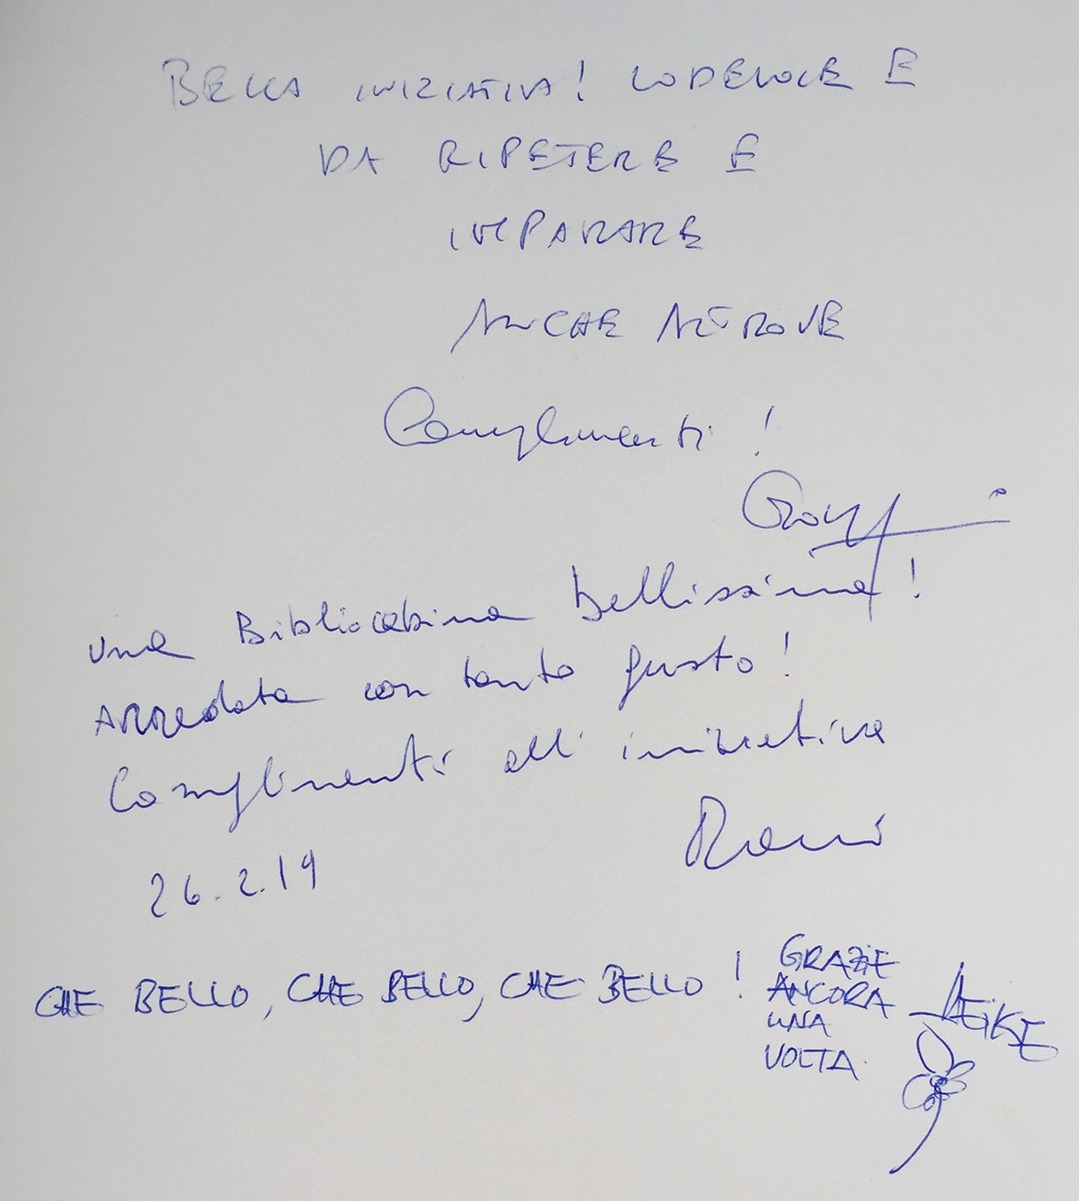 BELLA INIZIATIVA! LODEVOLE E
DA RIPETERE E
IMPARARE
ANCHE ALTROVE
Complimenti!
Una Bibliocabina bellissima!
Arredata con tanto gusto!
Complimenti all'iniziativa
26.2.19
CHE BELLO, CHE BELLO, CHE BELLO!
GRAZIE
ANCORA
UNA
VOLTA.